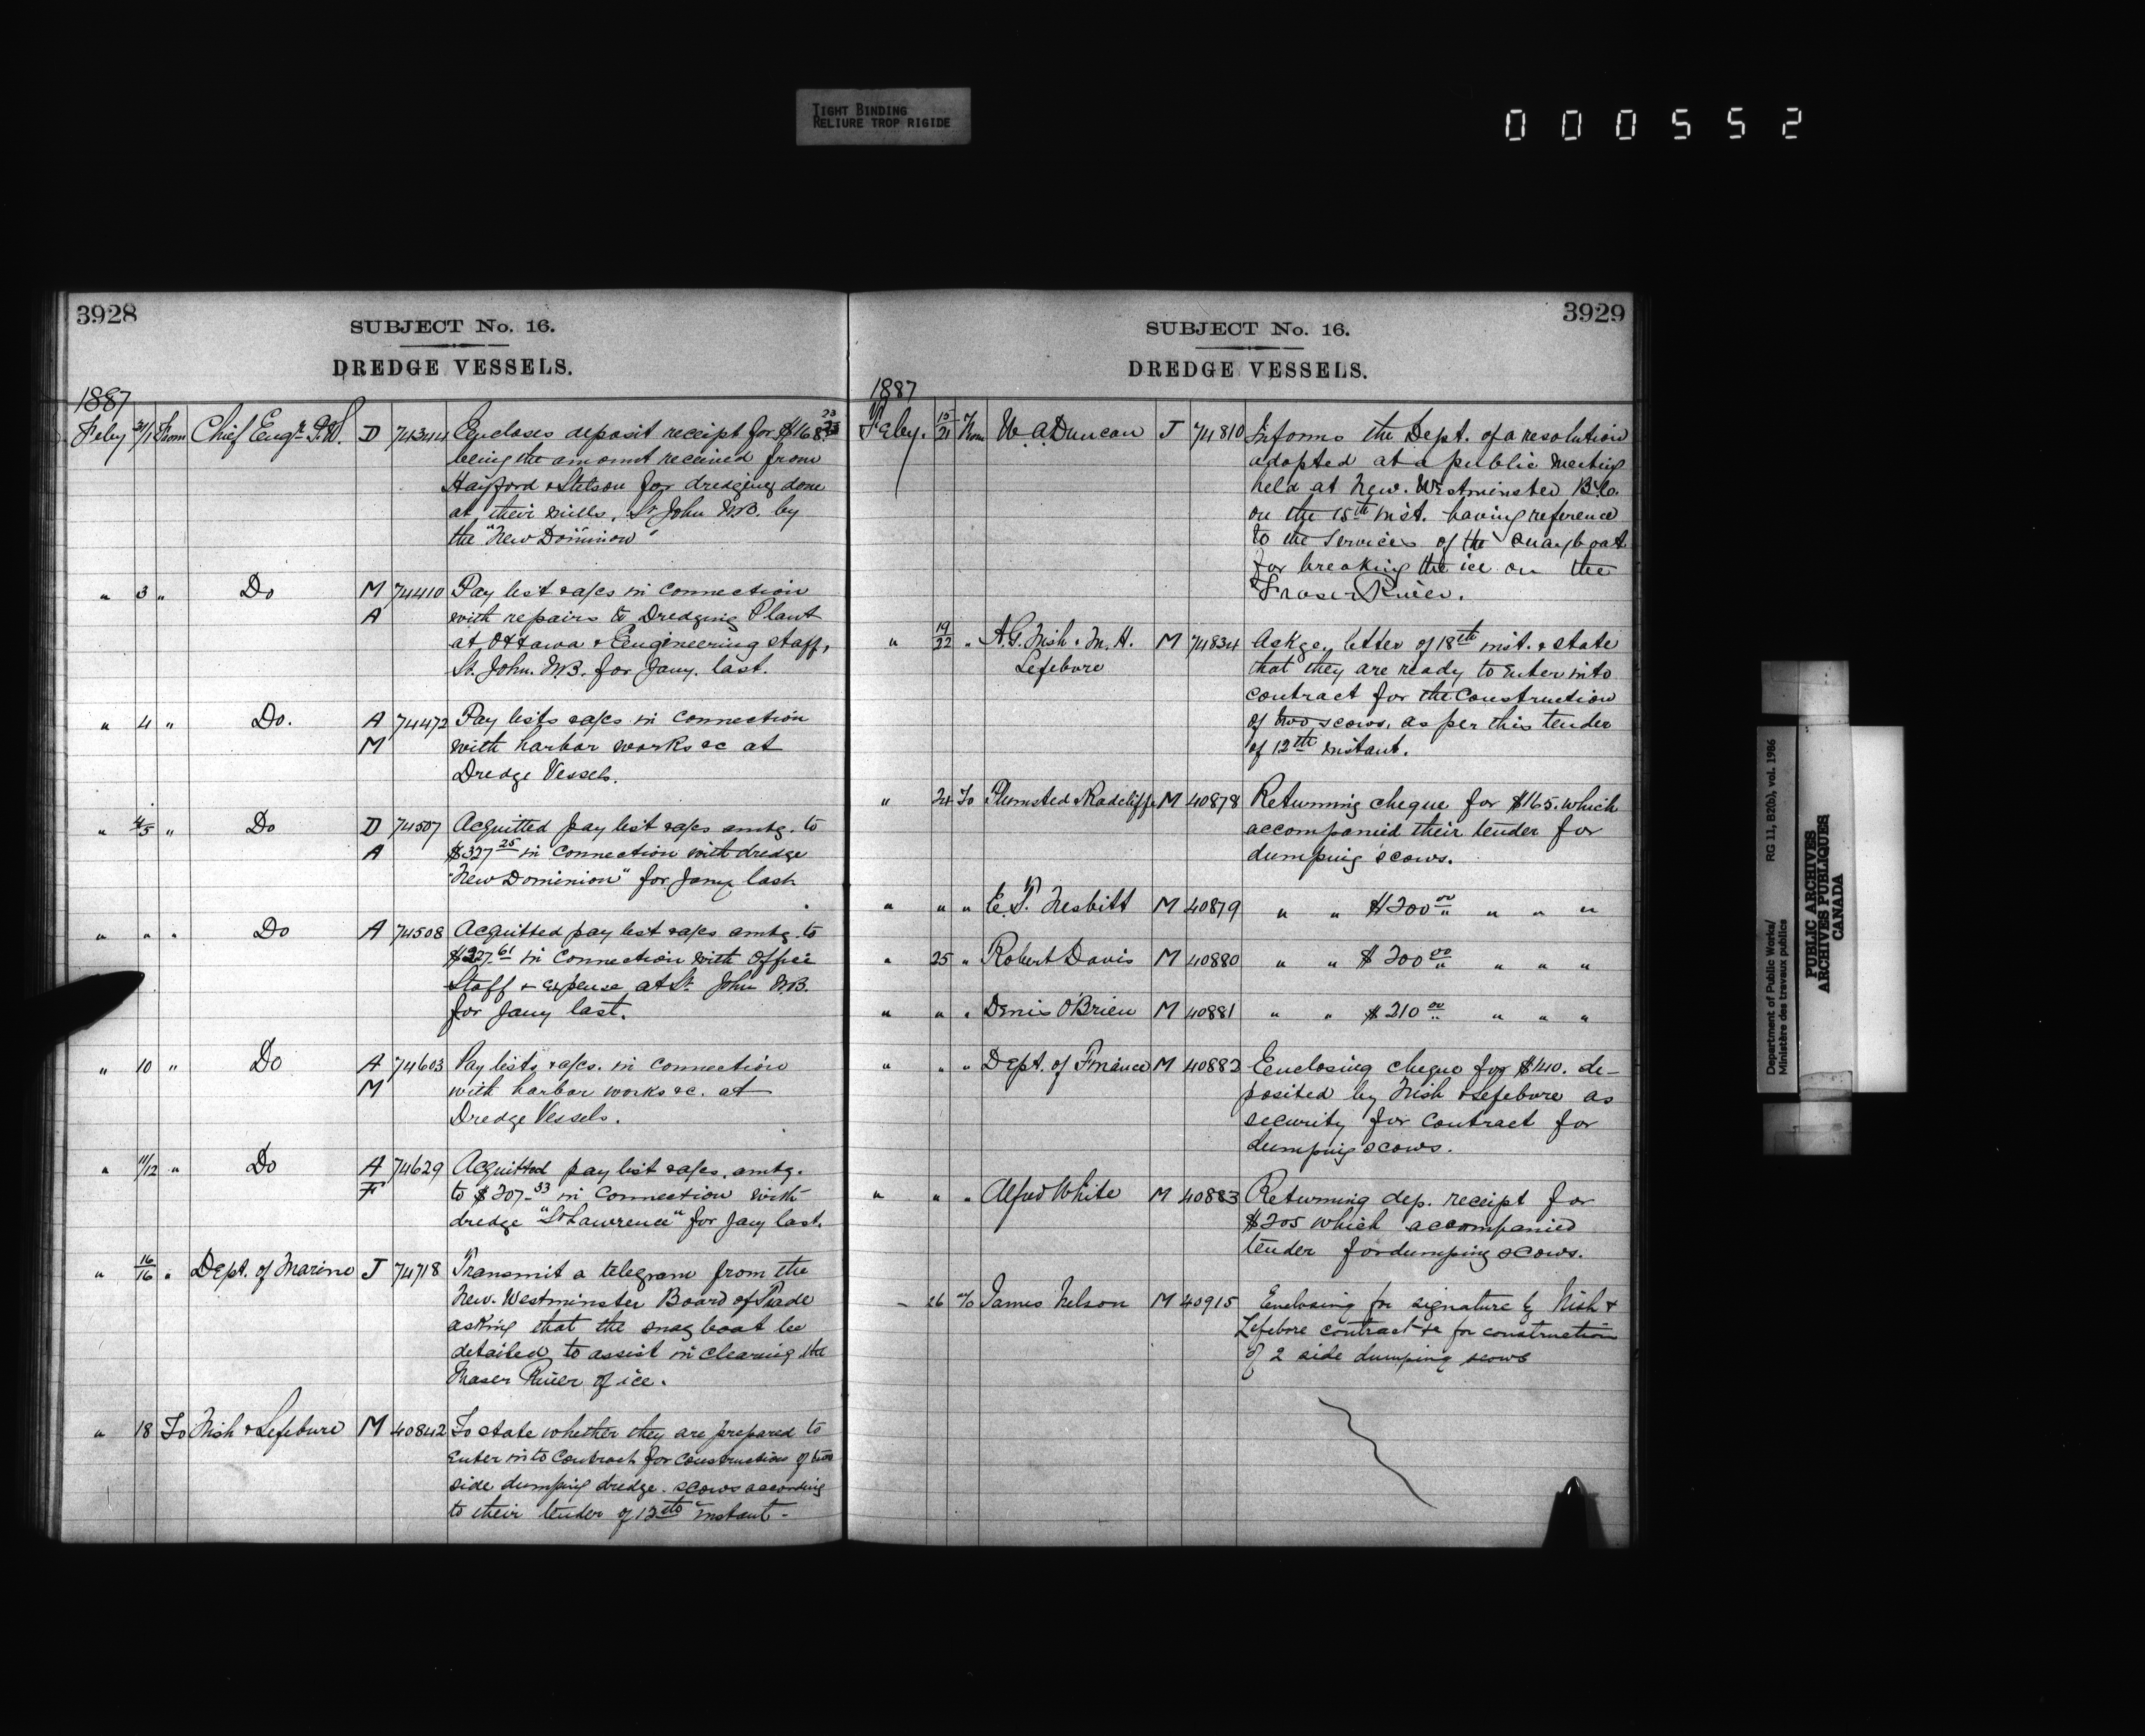 TIGHT BINDING
RELIURE TROP RIGIDE
000552
3928
SUBJECT No. 16.
DREDGE VESSELS.
1887
Feby 31/1 From Chief Engr. P.W. D 74344 Encloses deposit receipt for $168.23
being the amount received from
Hayford & Stetson for dredging done
at their mills, St John N.B. by
the "New Dominion"
" 3 " Do M 74410 Pay list & a/cs in connection
A with repairs to Dredging Plant
at Ottawa & Engineering staff,
St. John. N.B. for Jany. last.
" 4 " Do. A 74472 Pay lists & a/cs in connection
M with harbor works &c at
Dredge Vessels.
" 4/5 " Do D 74507 Acquitted pay list & a/cs amtg. to
A $327 25 in connection with dredge
"New Dominion" for Jany last
" " " Do A 74508 Acquitted pay list & a/cs amtg. to
$227.61 in connection with office
Staff & expense at St. John N.B.
for Jany last.
" 10 " Do A 74603 Pay lists & a/cs. in connection
M with harbor works &c. at
Dredge Vessels.
" 11/12 " Do A 74629 Acquitted pay list & a/cs. amtg.
F to $207.33 in connection with
dredge "St Lawrence" for Jany last.
" 16/16 " Dept. of Marine J 74718 Transmit a telegram from the
New. Westminster Board of Trade
asking that the snag boat be
detailed to assist in clearing the
Fraser River of ice.
" 18 To Nish & Lefebure M 40842 To state whether they are prepared to
enter into contract for construction of two
side dumping dredge. scows according
to their tender of 12th instant -
3929
SUBJECT No. 16.
DREDGE VESSELS.
1887
Feby. 15/21 From W. A. Duncan J 74810 Informs the Dept. of a resolution
adopted at a public meeting
held at New. Westminster B.C.
on the 15th inst. having reference
to the services of the snagboat
for breaking the ice on the
Fraser River.
" 19/22 " A.G. Nish & M. H. M 74834 Ackge. letter of 18th inst. & state
Lefebvre that they are ready to enter into
contract for the construction
of two scows, as per this tender
of 12th instant.
" 24 To Plumsted & Radcliffe M 40878 Returning cheque for $165. which
accompanied their tender for
dumping scows.
" " " E. T. Nesbitt M 40879 " " $200 00 " " "
" 25 " Robert Davis M 40880 " " $200 00 " " "
" " " Denis O'Brien M 40881 " " $210 00 " " "
" " " Dept. of Finance M 40882 Enclosing cheque for $140. de-
posited by Nish & Lefebvre as
security for contract for
dumping scows.
" " " Alfred White M 40883 Returning dep. receipt for
$205 which accompanied
tender for dumping scows.
- 26 To James Nelson M 40915 Enclosing for signature by Nish &
Lefebvre contract &c for construction
of 2 side dumping scows
Department of Public Works/
Ministère des travaux publics
RG 11, B2(b), vol. 1986
PUBLIC ARCHIVES
ARCHIVES PUBLIQUES
CANADA